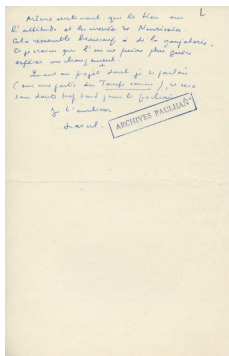 L
Même sentiment que le tien sur
l'attitude et les
Cela ressemble beaucoup à de la
Et je crains que l'on ne puisse plus guère
espérer un changement.
Quant au projet dont je te parlais
(sur une partie du Temps ), ce sera
sans doute trop tard pour le prochain
Je t'embrasse
Marcel.
ARCHIVES PAULHAN